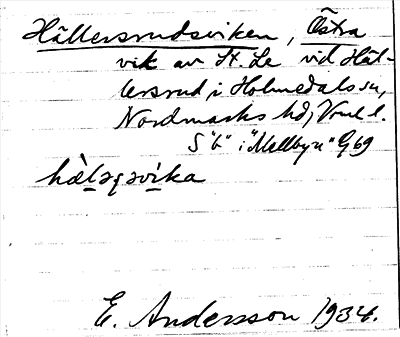 Hällersrudsviken, Östra
vik av St. Le vid Häl-
lersrud i Holmedals sn,
Nordmarks hd, Vrml l.
S "b" i "Mellbyn" G69
E. Andersson 1934.